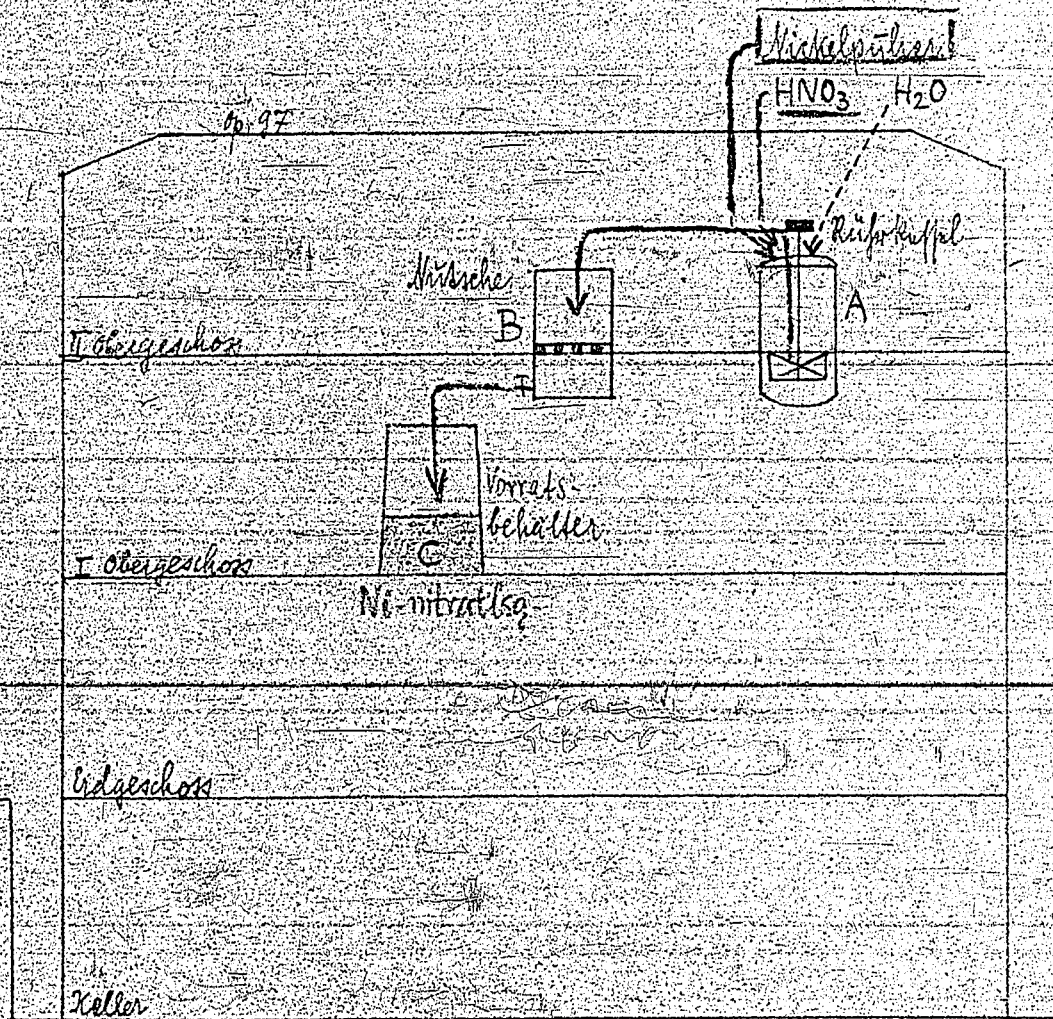 Nickelpulver
HNO₃ H₂O
Op. 97
Rührkessel
Nutsche
A
B
II Obergeschoss
Vorrats-
behälter
C
I Obergeschoss
Ni-nitratlsg.
Erdgeschoss
Keller